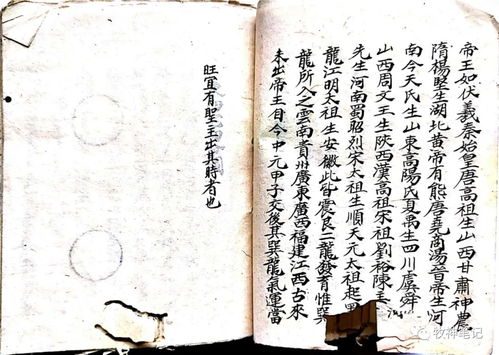 帝王如伏羲秦始皇唐高祖生山西甘肅神農
隋楊堅生湖北黄帝有熊唐堯商湯晉帝生河
南今天氏生山東高陽氏夏禹生四川虞舜
山西周文王生陝西漢高祖宋祖劉裕陳
先生河南蜀昭烈宋太祖生順天元太祖起
龍江明太祖生安徽此皆震艮二龍發育惟巽
龍所入之雲南貴州廣東廣西福建江西古來
未出帝王自今中元甲子交後其巽龍氣運當
旺宜有聖主出其時者也
牧禅笔记